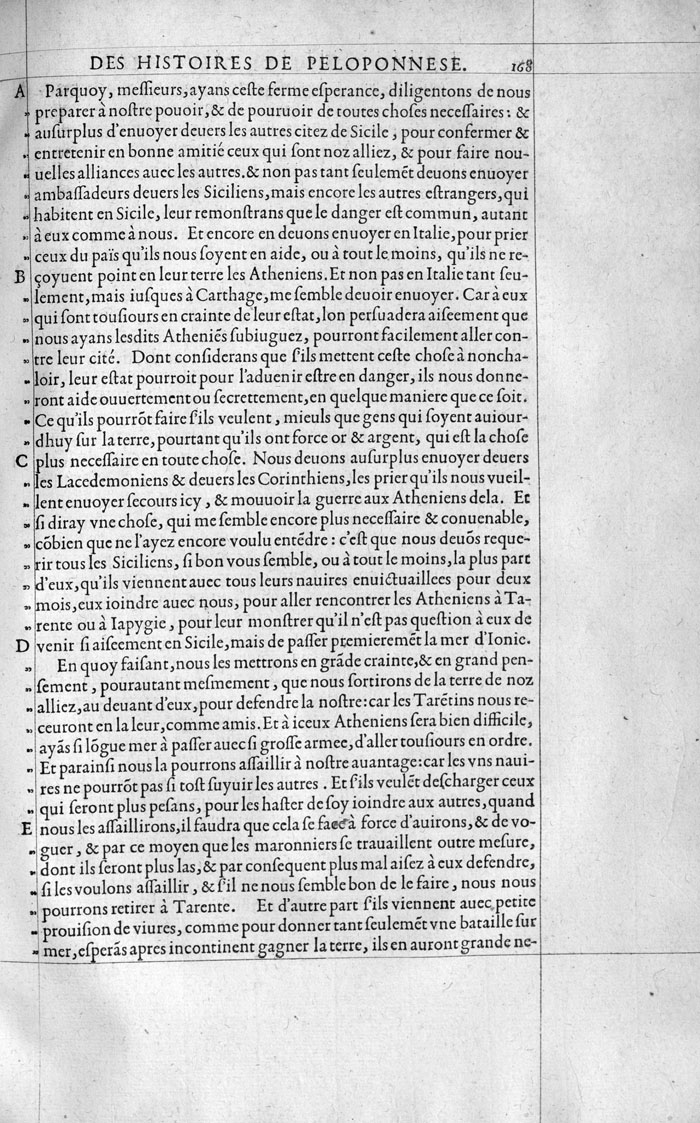 DES HISTOIRES DE PELOPONNESE. 168
A Parquoy, meſſieurs, ayans ceſte ferme eſperance, diligentons de nous
„ preparer à noſtre pouoir, & de pouruoir de toutes choſes neceſſaires: &
„ auſurplus d'enuoyer deuers les autres citez de Sicile, pour confermer &
„ entretenir en bonne amitié ceux qui ſont noz alliez, & pour faire nou-
„ uelles alliances auec les autres, & non pas tant ſeulemẽt deuons enuoyer
„ ambaſſadeurs deuers les Siciliens, mais encore les autres eſtrangers, qui
„ habitent en Sicile, leur remonſtrans que le danger eſt commun, autant
„ à eux comme à nous. Et encore en deuons enuoyer en Italie, pour prier
„ ceux du païs qu'ils nous ſoyent en aide, ou à tout le moins, qu'ils ne re-
B çoyuent point en leur terre les Atheniens. Et non pas en Italie tant ſeu-
„ lement, mais iuſques à Carthage, me ſemble deuoir enuoyer. Car à eux
„ qui ſont touſiours en crainte de leur eſtat, lon perſuadera aiſeement que
„ nous ayans leſdits Atheniẽs ſubiuguez, pourront facilement aller con-
„ tre leur cité. Dont conſiderans que ſ'ils mettent ceſte choſe à noncha-
„ loir, leur eſtat pourroit pour l'aduenir eſtre en danger, ils nous donne-
„ ront aide ouuertement ou ſecrettement, en quelque maniere que ce ſoit.
„ Ce qu'ils pourrõt faire ſ'ils veulent, mieuls que gens qui ſoyent auiour-
„ dhuy ſur la terre, pourtant qu'ils ont force or & argent, qui eſt la choſe
C plus neceſſaire en toute choſe. Nous deuons auſurplus enuoyer deuers
„ les Lacedemoniens & deuers les Corinthiens, les prier qu'ils nous vueil-
„ lent enuoyer ſecours icy, & mouuoir la guerre aux Atheniens dela. Et
„ ſi diray vne choſe, qui me ſemble encore plus neceſſaire & conuenable,
„ cõbien que ne l'ayez encore voulu entẽdre: c'eſt que nous deuõs reque-
„ rir tous les Siciliens, ſi bon vous ſemble, ou à tout le moins, la plus part
„ d'eux, qu'ils viennent auec tous leurs nauires enuictuaillees pour deux
„ mois, eux ioindre auec nous, pour aller rencontrer les Atheniens à Ta-
„ rente ou à Iapygie, pour leur monſtrer qu'il n'eſt pas queſtion à eux de
D venir ſi aiſeement en Sicile, mais de paſſer premieremẽt la mer d'Ionie.
„ En quoy faiſant, nous les mettrons en grãde crainte, & en grand pen-
„ ſement, pourautant meſmement, que nous ſortirons de la terre de noz
„ alliez, au deuant d'eux, pour defendre la noſtre: car les Tarẽtins nous re-
„ ceuront en la leur, comme amis. Et à iceux Atheniens ſera bien difficile,
„ ayãs ſi lõgue mer à paſſer auec ſi groſſe armee, d'aller touſiours en ordre.
„ Et parainſi nous la pourrons aſſaillir à noſtre auantage: car les vns naui-
„ res ne pourrõt pas ſi toſt ſuyuir les autres. Et ſ'ils veulẽt deſcharger ceux
„ qui ſeront plus peſans, pour les haſter de ſoy ioindre aux autres, quand
E nous les aſſaillirons, il faudra que cela ſe face à force d'auirons, & de vo-
„ guer, & par ce moyen que les maronniers ſe trauaillent outre meſure,
„ dont ils ſeront plus las, & par conſequent plus mal aiſez à eux defendre,
„ ſi les voulons aſſaillir, & ſ'il ne nous ſemble bon de le faire, nous nous
„ pourrons retirer à Tarente. Et d'autre part ſ'ils viennent auec petite
„ prouiſion de viures, comme pour donner tant ſeulemẽt vne bataille ſur
„ mer, eſperãs apres incontinent gagner la terre, ils en auront grande ne-